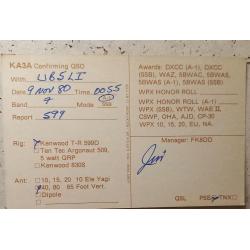 KA3A Confirming QSO
With UB5LI
Date 9 NOV 80 Time 0055
Band 7 Mode SSB
Report 599
Rig: Kenwood T-R 599D
Ten Tec Argonaut 509,
5 watt QRP
Kenwood 830S
Ant: 10, 15, 20 10 Ele Yagi
40, 80 65 Foot Vert.
Dipole
Awards: DXCC (A-1), DXCC
(SSB), WAZ, 5BWAC, 5BWAS,
5BWAS (A-1)
WPX HONOR ROLL
WPX HONOR ROLL (A-1)
(SSB), WTW, WAE II
CSWP, OHA, AJD, CP-30
WPX 10, 15, 20, EU, NA.
Manager: FK8DD
Jim
QSL PSE TNX